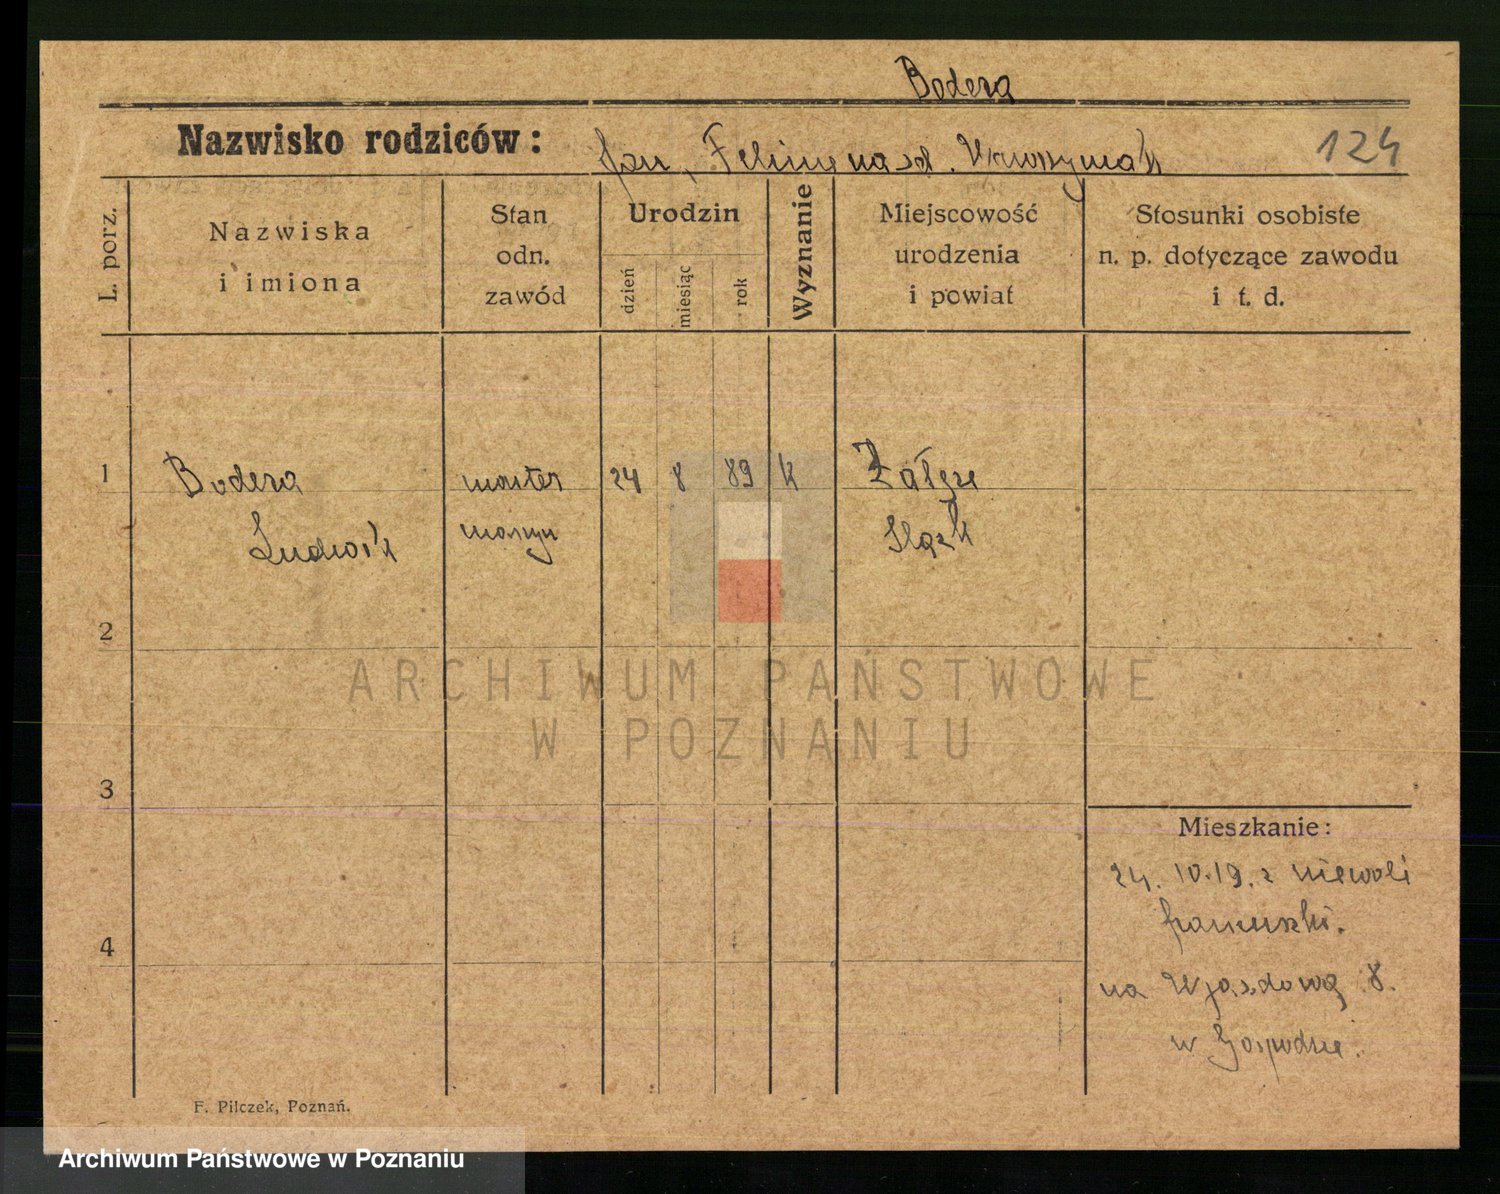 Bodera
Nazwisko rodziców: Jan, Felicyna
124
L. porz.
Nazwiska
i imiona
Stan
odn.
zawód
Urodzin
dzień
miesiąc
rok
Wyznanie
Miejscowość
urodzenia
i powiat
Stosunki osobiste
n. p. dotyczące zawodu
i t. d.
1 Bodera monter 24 8 89 k Załęże
Ludwik maszyn Śląsk
2
3
4
ARCHIWUM PAŃSTWOWE
W POZNANIU
Mieszkanie:
24. 10. 19. z niewoli
francuski.
na Wjazdową 8.
w Gospodzie.
F. Pilczek, Poznań.
Archiwum Państwowe w Poznaniu